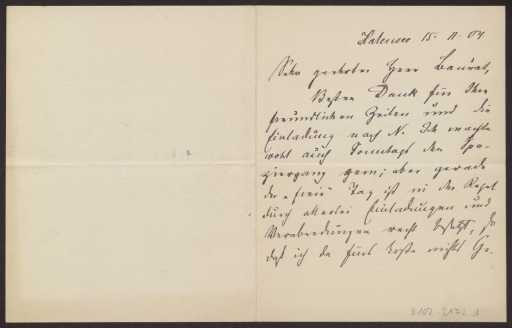 Halensee 15. 11. 04.
Sehr geehrter Herr Baurat,
Besten Dank für Ihre
freundlichen Zeilen und die
Einladung nach N. Ich machte
wohl auch Sonntags den Spa-
ziergang gern; aber gerade
der "freie" Tag ist in der Regel
durch allerlei Einladungen und
Verabredungen recht besetzt, so
daß ich da fürs Erste nichts Ge-